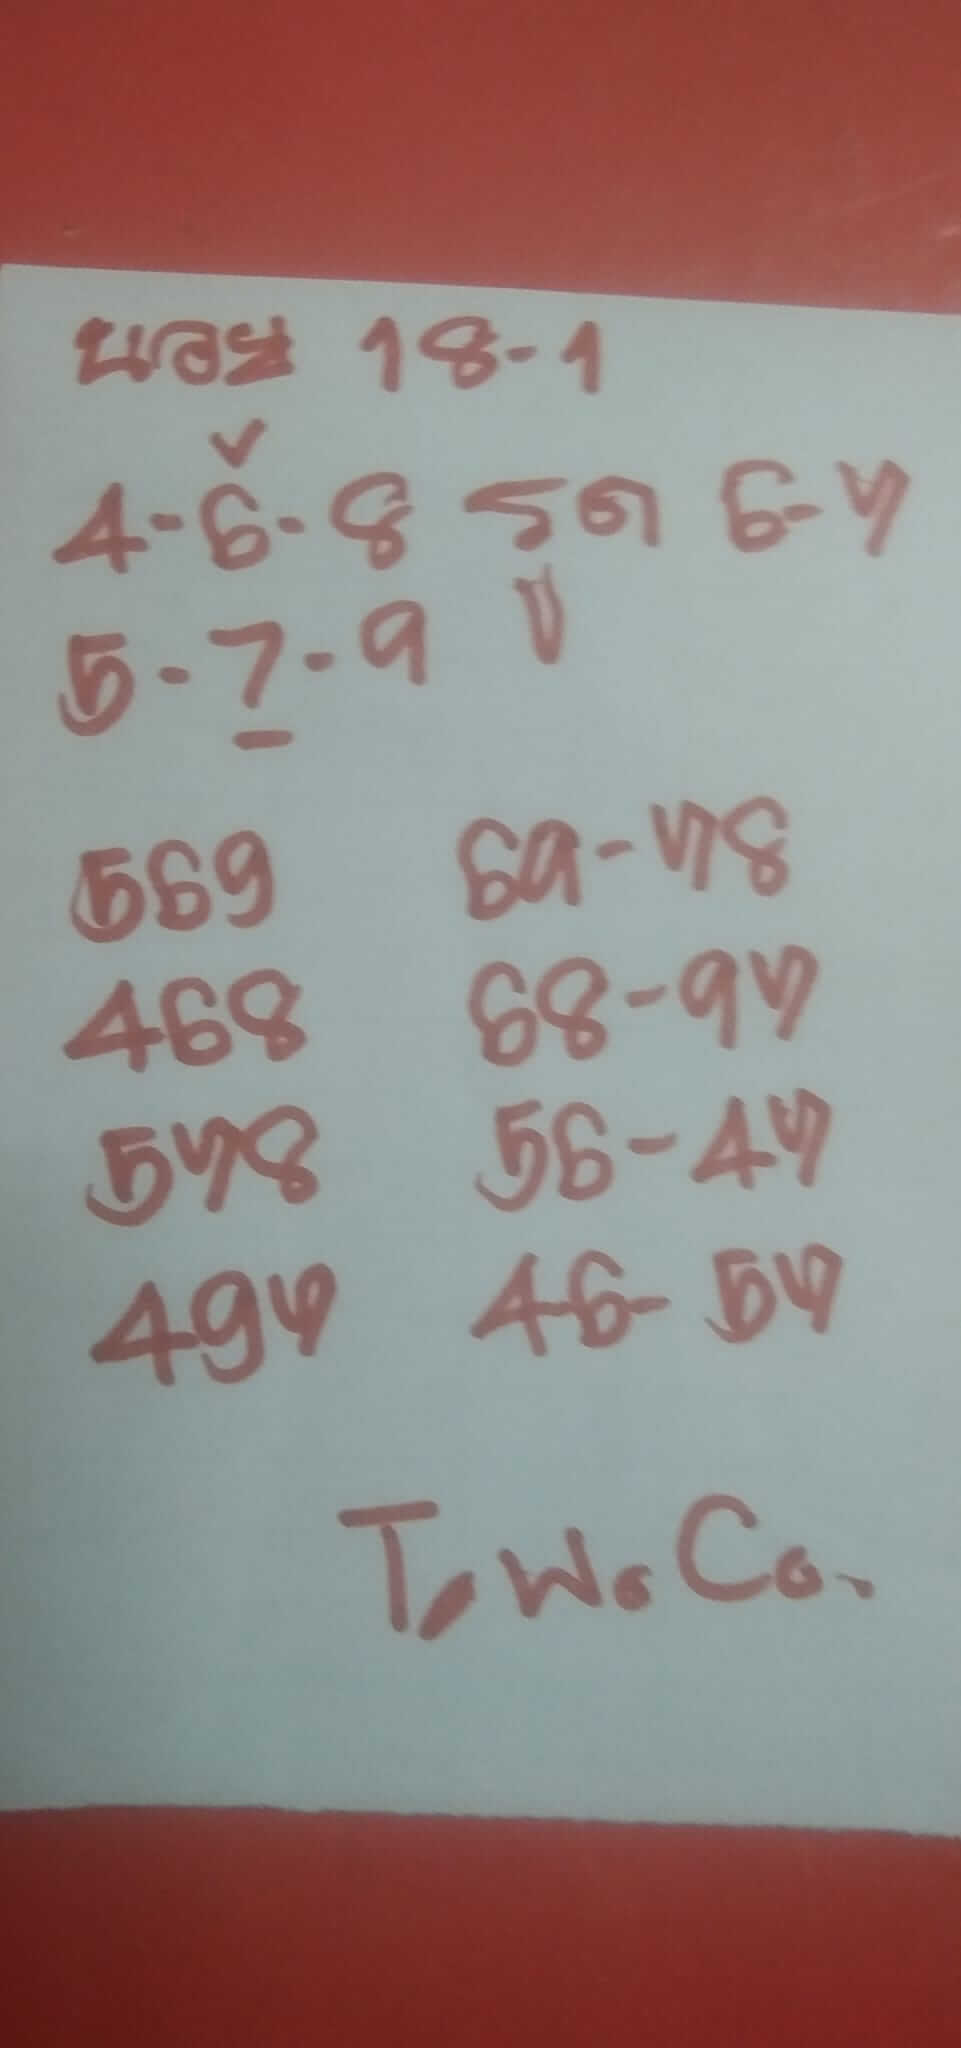 นอย 18-1
4-6-8 รูด 6-7
5-7-9
569 69-78
468 68-97
578 56-47
497 46-57
T.W.Co.